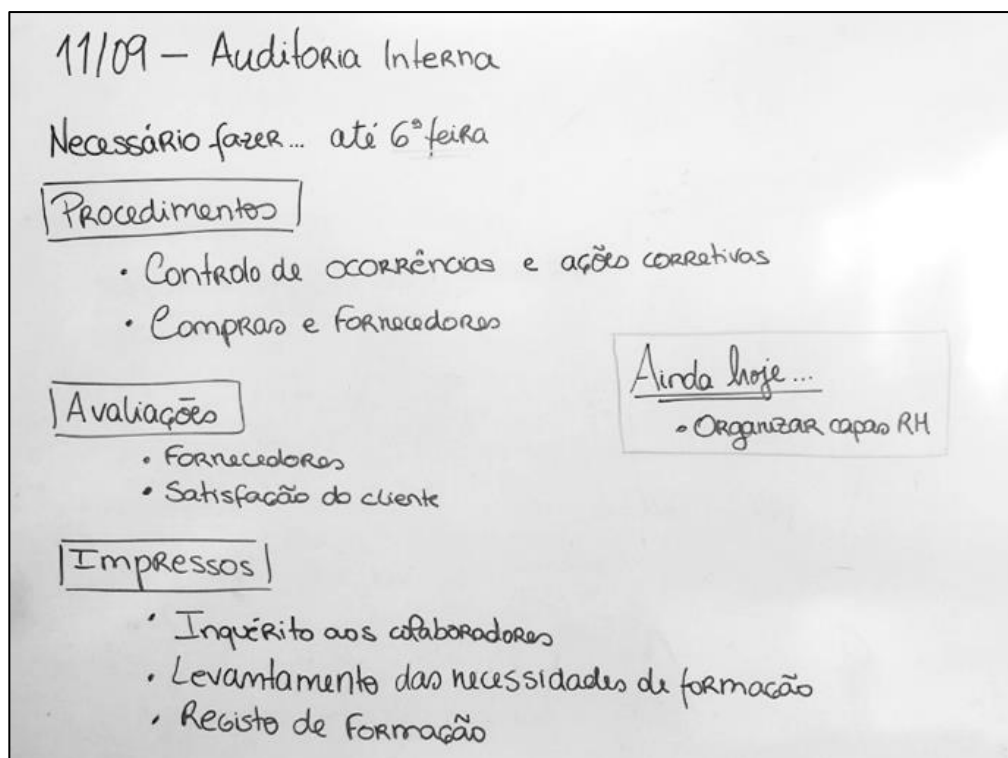 11/09 — Auditoria Interna
Necessário fazer... até 6ª feira
Procedimentos
• Controlo de ocorrências e ações corretivas
• Compras e fornecedores
Avaliações
• Fornecedores
• Satisfação do cliente
Ainda hoje...
• Organizar capas RH
Impressos
• Inquérito aos colaboradores
• Levantamento das necessidades de formação
• Registo de formação